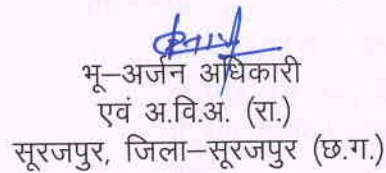 भू–अर्जन अधिकारी
एवं अ.वि.अ. (रा.)
सूरजपुर, जिला–सूरजपुर (छ.ग.)